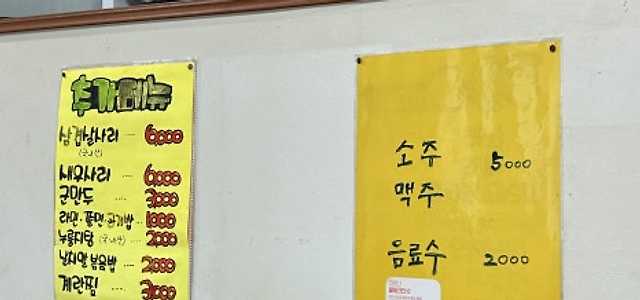 추가메뉴
삼겹살사리 ···· 6,000
(국내산)
새우사리 ···· 6,000
군만두 ···· 3,000
라면·쫄면·공기밥·· 1,000
누룽지탕 (국내산) ··· 2,000
날치알볶음밥 ···· 2,000
계란찜 ···· 3,000
소주 5000
맥주
음료수 2000